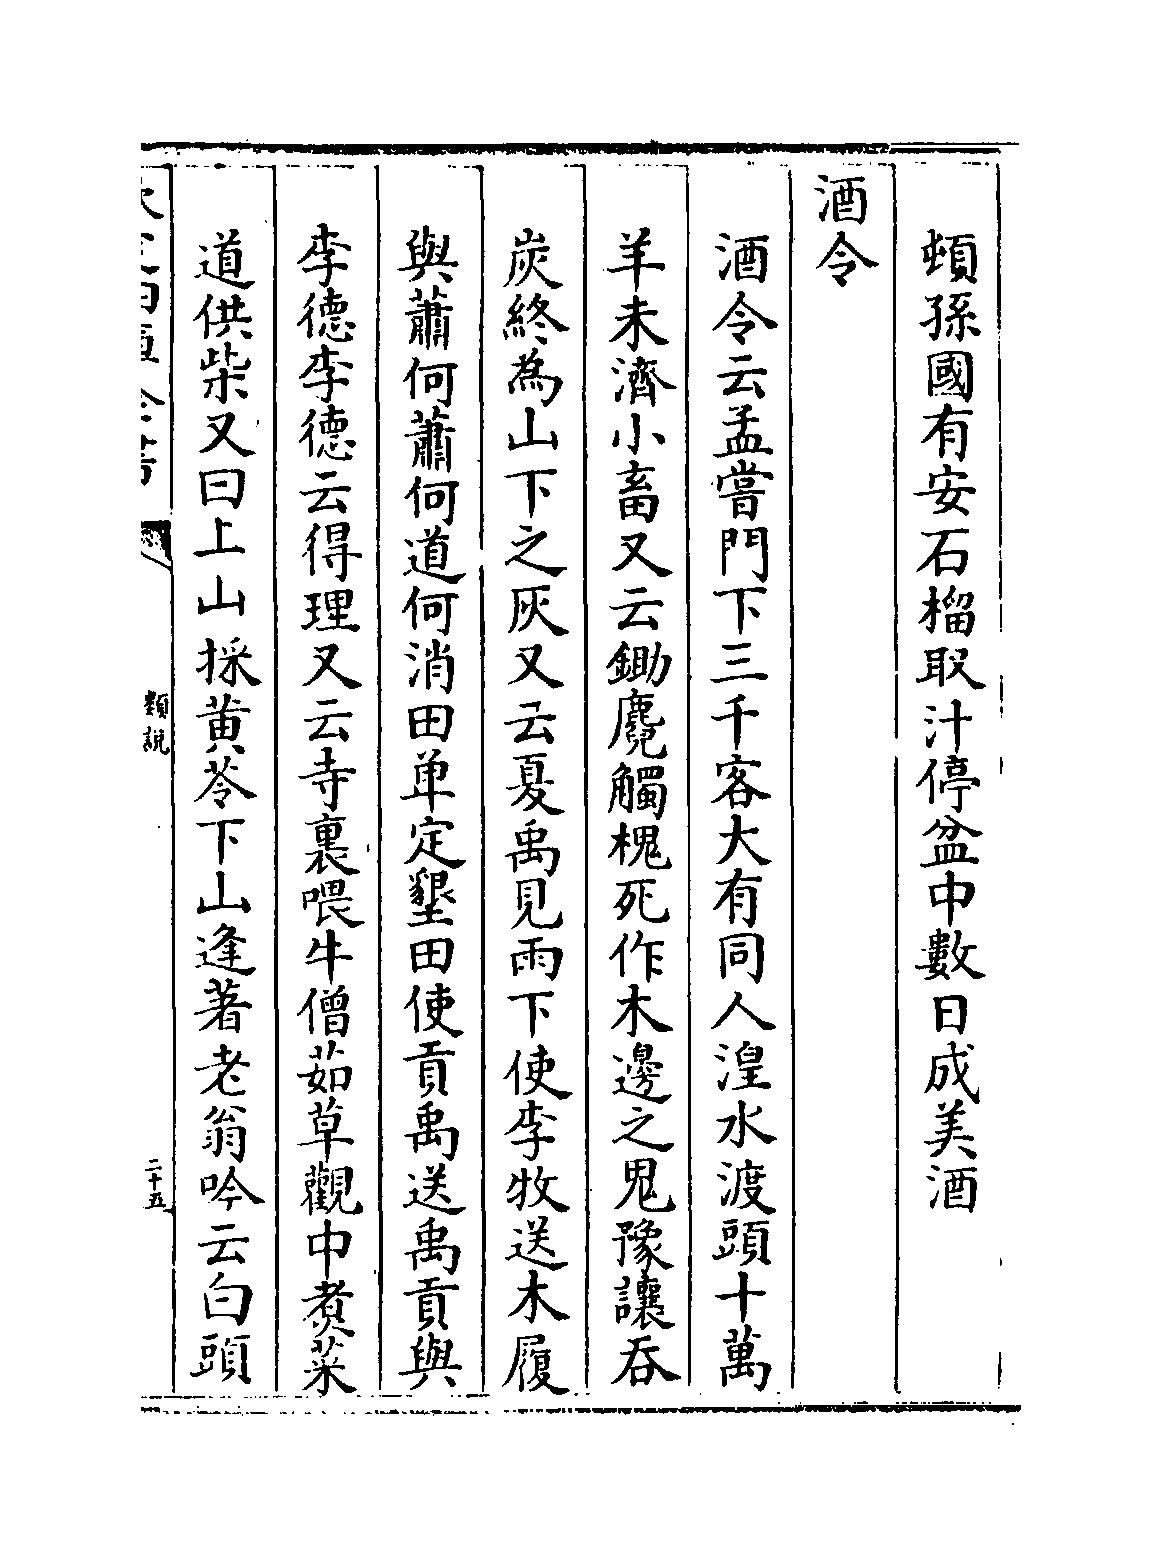 頓孫國有安石榴取汁停盆中數日成美酒
酒令
酒令云孟嘗門下三千客大有同人湟水渡頭十萬
羊未濟小畜又云鋤麑觸槐死作木邊之鬼豫讓吞
炭終為山下之灰又云夏禹見雨下使李牧送木履
與蕭何蕭何道何消田单定墾田使貢禹送禹貢與
李德李德云得理又云寺裏喂牛僧茹草觀中煑菜
道供柴又曰上山採黄芩下山逢著老翁吟云白頭
欽定四庫全書
類說
二十五